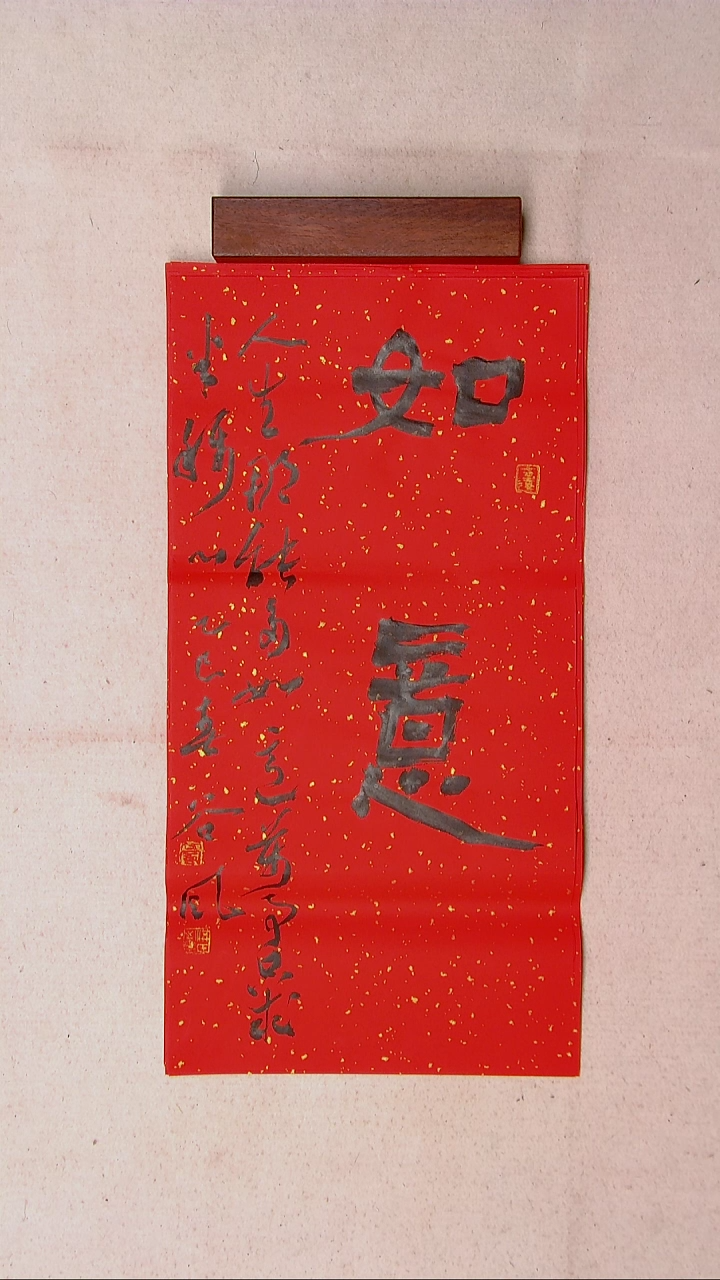 如意
人生那能多如意万事只求
半称心乙巳春谷风